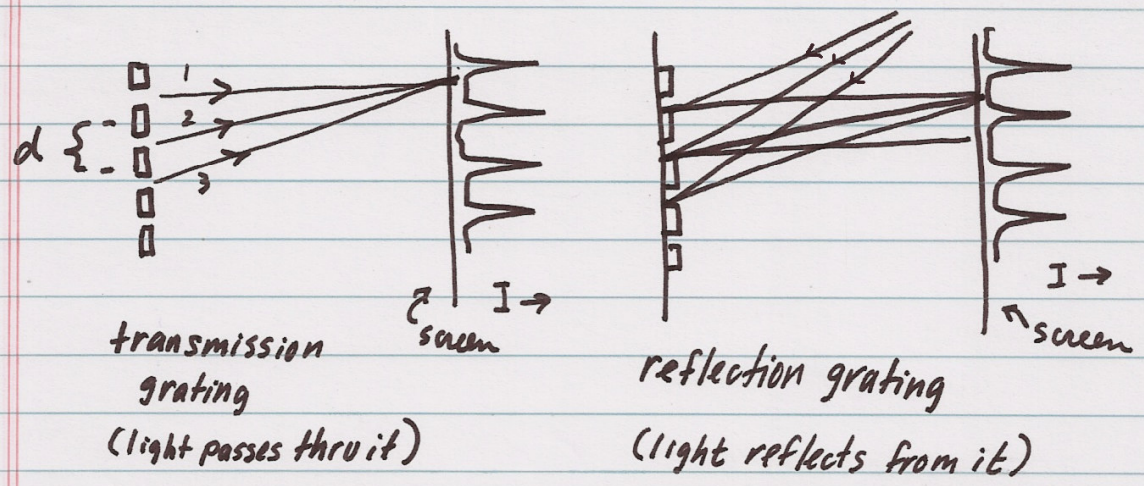 1
2
3
d
I →
screen
transmission
grating
(light passes thru it)
I →
screen
reflection grating
(light reflects from it)